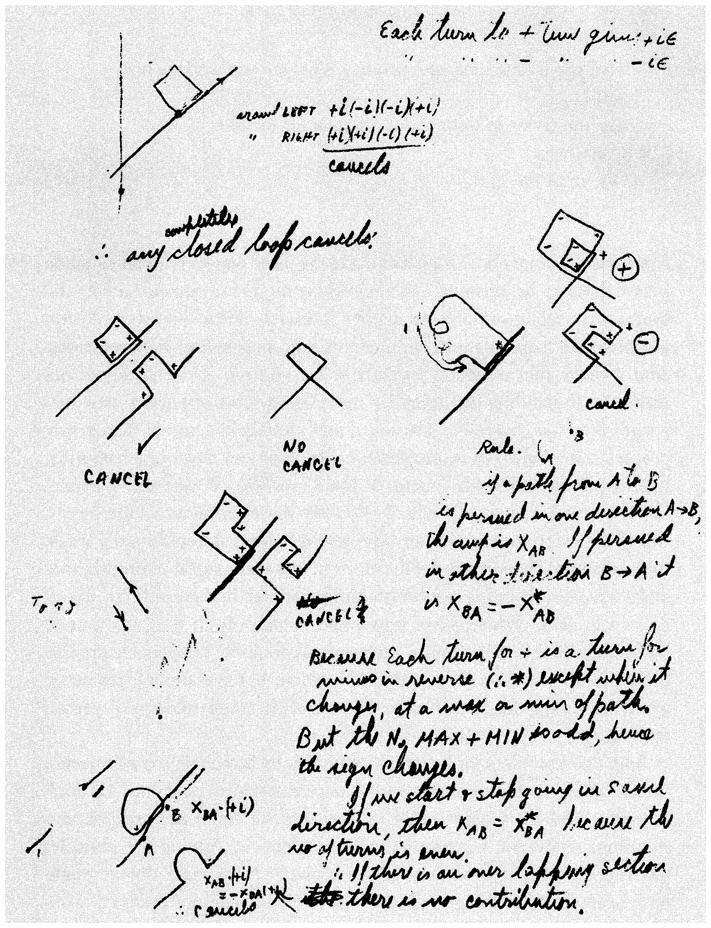 Each turn to + time gives +iε
" " " − " −iε
around LEFT +i(-i)(-i)(+i)
" RIGHT (+i)(+i)(-i)(+i)
cancels
∴ any completely closed loop cancels.
+
−
cancel.
CANCEL
NO
CANCEL
CANCELS
Rule.
B
A
if a path from A to B
is persued in one direction A→B,
the amp is X_AB If persued
in other direction B→A it
is X_BA = -X*_AB
Because Each turn for + is a turn for
minus in reverse (∴ *) except when it
changes, at a max or min of path.
But the No MAX + MIN is odd, hence
the sign changes.
If we start & stop going in same
direction, then K_AB = X*_BA because the
no of turns is even.
∴ If there is an over lapping section
there is no contribution.
B X_BA·(+i)
A
X_AB·(+i)
∴ cancels